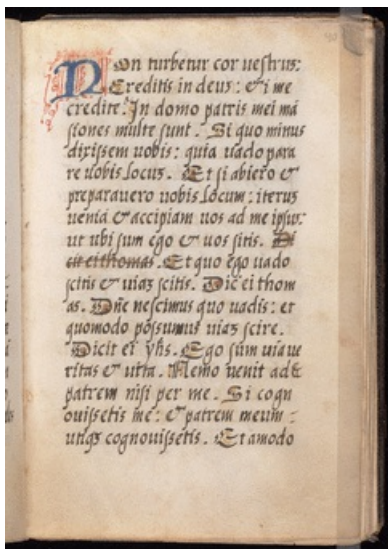 Non turbetur cor vestrus:
Creditis in deus: & i me
credite. In domo patris mei mā
siones multe sunt. Si quo minus
dixissem vobis: quia vado para
re vobis locus. Et si abiero &
preparavero vobis locum: iterus
veniā & accipiam vos ad me ipsus:
ut ubi sum ego & vos sitis. Di
cit ei thomas. Et quo ego vado
scitis & viaʒ scitis. Dic̄ ei thom
as. Dn̄e nescimus quo vadis: et
quomodo possumus viaʒ scire.
Dicit ei yh̄s. Ego sum via ve
ritas & vita. Nemo venit ad
patrem nisi per me. Si cogn
ovissetis me: & patrem meum
utiqʒ cognovissetis. Et amodo